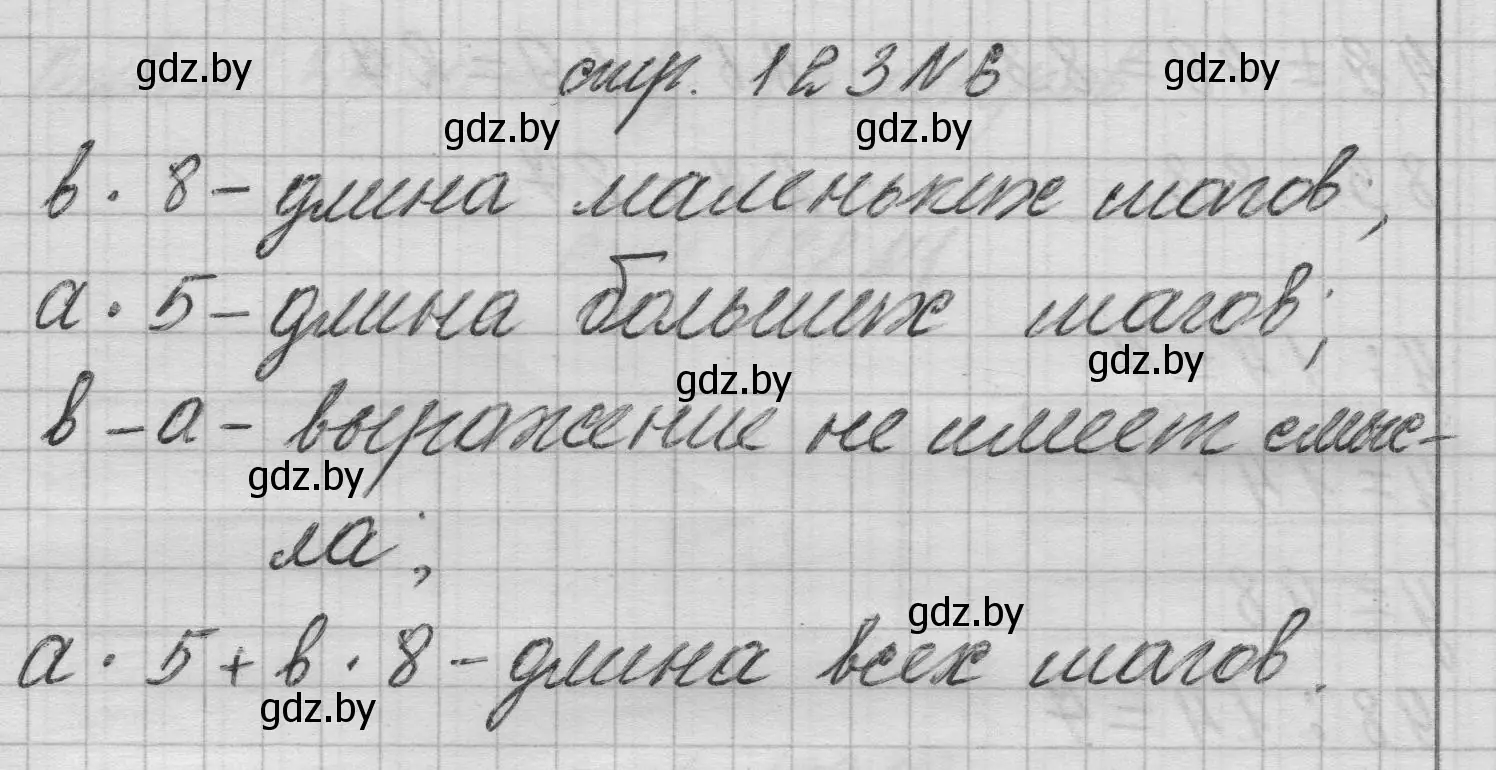 gdz.by стр. 123 N 6 gdz.by
gdz.by gdz.by
в · 8 – длина маленьких шагов;
а · 5 – длина больших шагов;
gdz.by gdz.by
в – а – выражение не имеет смыс-
gdz.by
ла;
gdz.by
а · 5 + в · 8 – длина всех шагов.
gdz.by